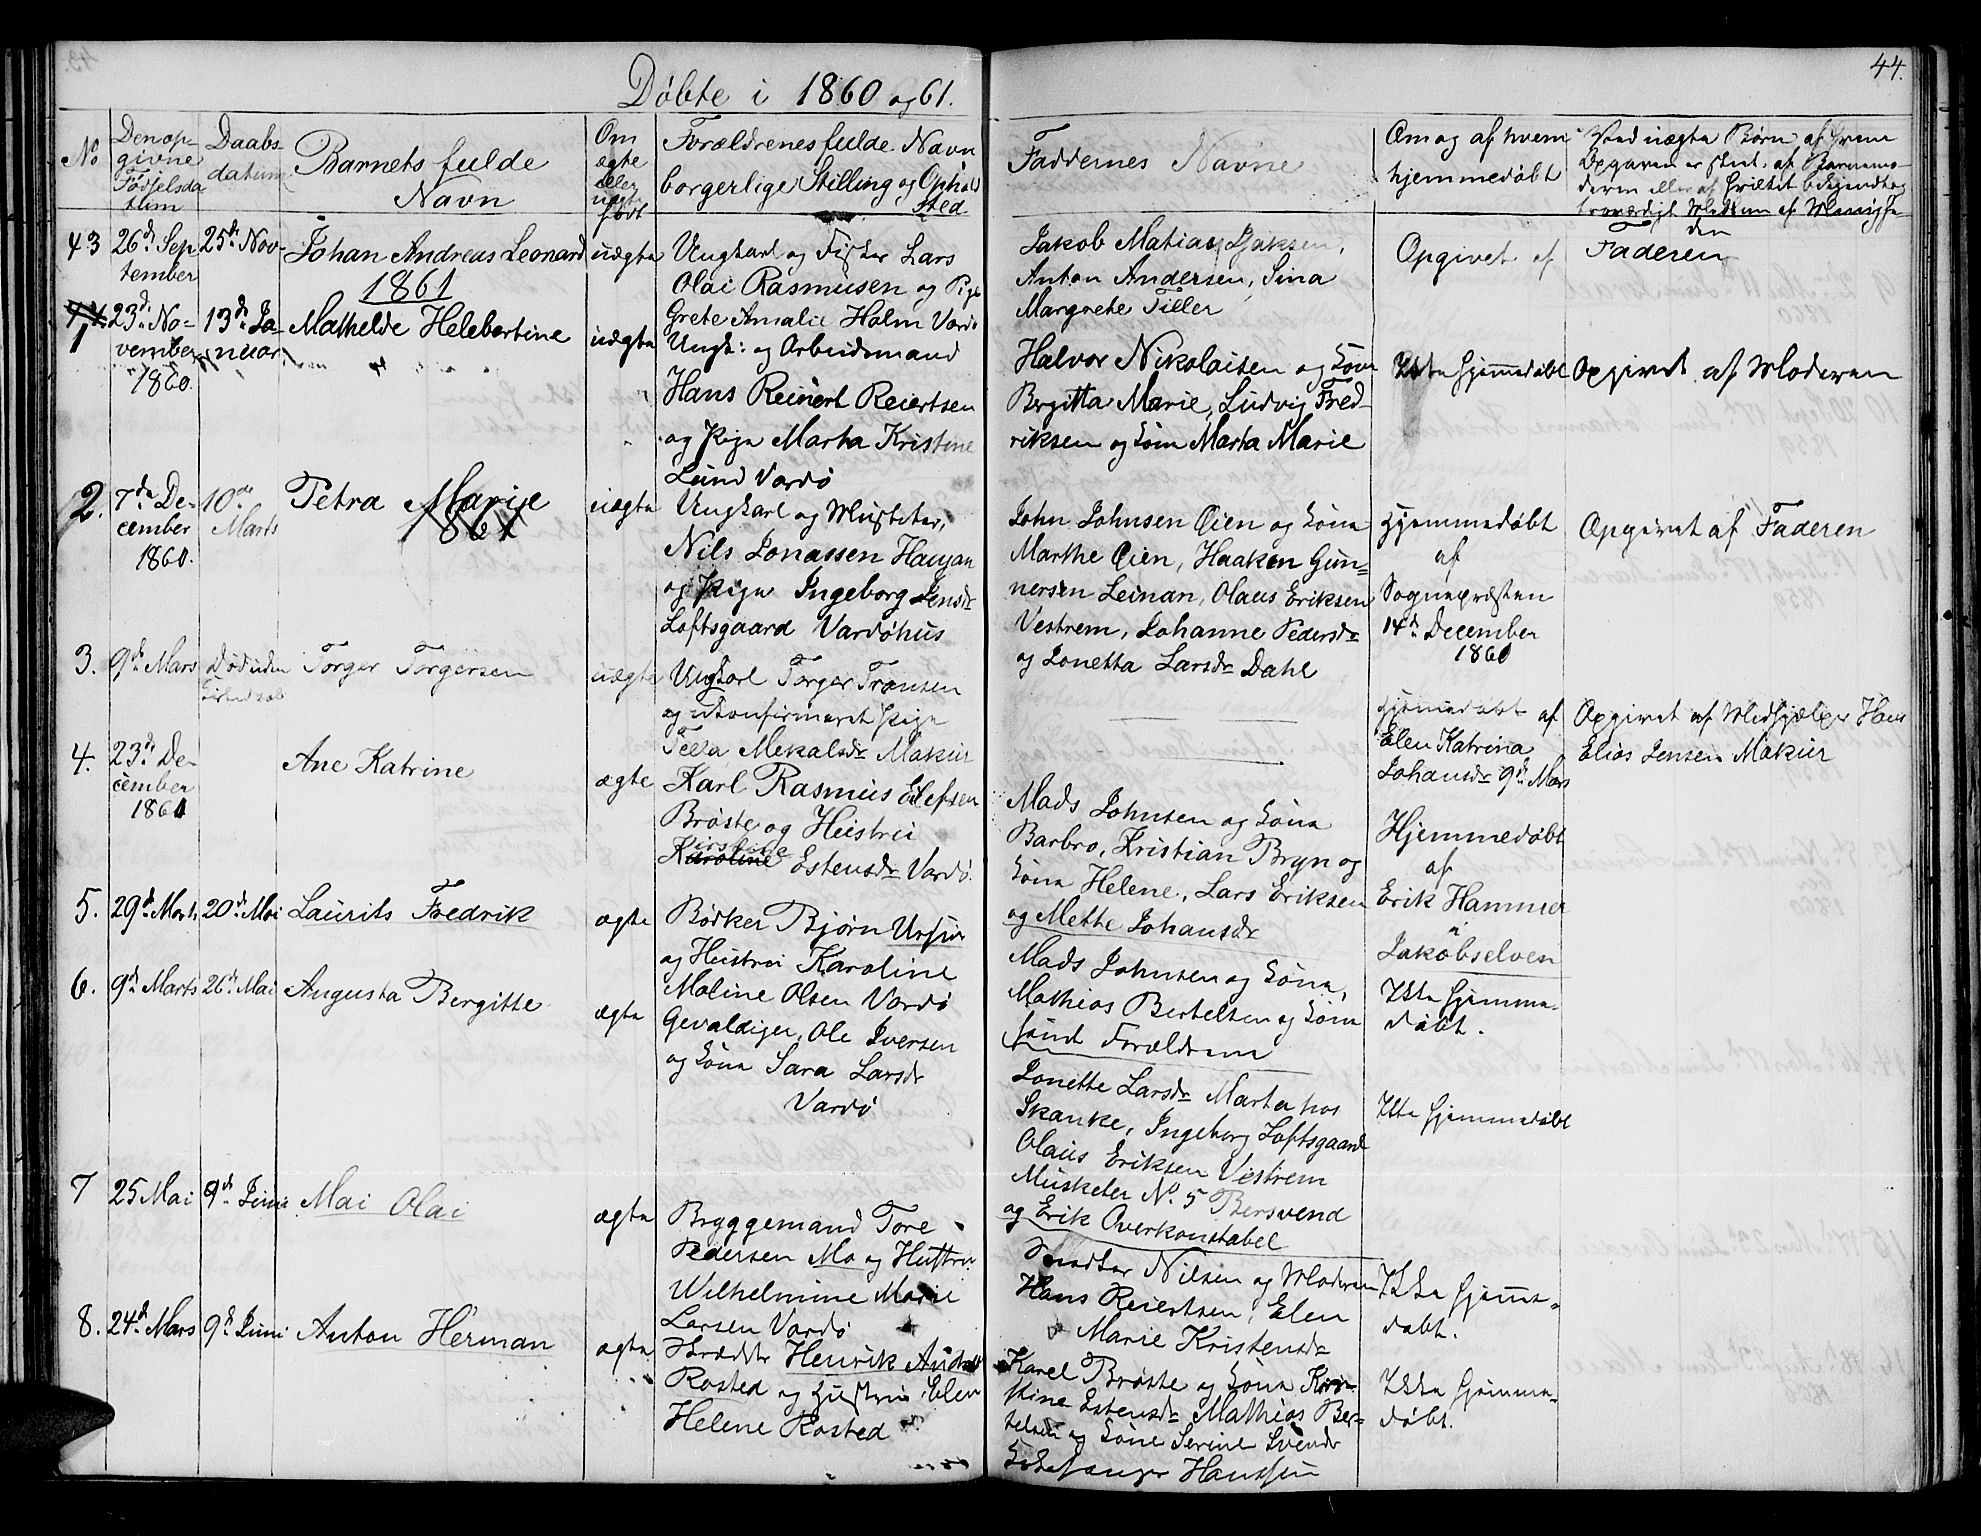 43.
44.
Döbte i 1860 og 61.
No
Den op-
givne
Födselsda
tum
Daabs-
datum
Barnets fulde
Navn
Om
ægte
eller
uægte
födt
Forældrenes fulde Navn
borgerlige Stilling og Ophold
sted
Faddernes Navne
Om og af hvem
hjemmedøbt
Ved uægte Børn af hvem
Opgaven er skeet, af Barnemo-
deren eller af
troværdigt
43
26de Sep
tember
25de Nov-
Johan Andreas Leonard
uægte
Ungkarl og Fisker Lars
Olai Rasmusen og Pige
Grete Amalie Holm Vardö
Jakob Matias Isaksen,
Anton Andersen, Sina
Margrete Tiller
Opgivet af
Faderen
1861
44.
1
23de No-
vember
1860
13de Ja-
nuar
Mathelde Helebertine
uægte
Ungk: og Arbeidsmand
Hans Reinert Reiertsen
og Pige Marta Kristine
Lund Vardö
Halvor Nikolaisen og Kone
Bergitta Marie, Ludvig Fred-
riksen og Kone Marta Marie
Ikke hjemmedøbt
Opgivet af Moderen
2.
7de De-
cember
1860.
10de
Marts
Petra Marie
1861
uægte
Ungkarl og Musketer,
Nils Jonassen Haugan
og Pige Ingeborg Jensdr
Loftsgaard Vardöhus
John Johnsen Öien og Kone
Marthe Öien, Haaken Gun-
nersen Leinan, Olaus Eriksen
Vestrem, Johanne Pedersdr
og Jonetta Larsdr Dahl
Hjemmedøbt
af
Sognepræsten
14de December
1860
Opgivet af Faderen
3.
9de Mars
Død uden
Torger Torgersen
uægte
Ungkarl Torger Tronsen
og ukonfirmeret Pige
Mekalsdr Makur
Hjemmedøbt af
Elen Katrina
Johansdr 9de Mars
Opgivet af Medhjælper Hans
Elias Jensen Makur
4.
23de De-
cember
1861
Ane Katrine
ægte
Karl Rasmus Elefsen
Bröste og Hustru
Kerstine
Karoline Estensdr Vardö.
Mads Johnsen og Kone
Barbro, Kristian Bryn og
Kone Helene, Lars Eriksen
og Mette Johansdr
Hjemmedøbt
af
Erik Hammer
i
Jakobselven
5.
29de Marts
20de Mai
Laurits Fredrik
ægte
Bödker Björn Ursin
og Hustru Karoline
Moline Olsen Vardö
Mads Johnsen og Kone,
Mathias Bertelsen og Kone
samt Forældrene
Ikke hjemme-
døbt.
6.
9de Marts
26de Mai
Augusta Bergitte
ægte
Gevaldiger, Ole Iversen
og Kone Sara Larsdr
Vardö
Jonette Larsdr Marta hos
Skanke, Ingeborg Loftsgaard
Olaus Eriksen Vestrem
Musketer No. 5 Bersvend
og Erik Overkonstabel
Ikke hjemmedøbt
7
25 Mai
9de Juni
Mai Olai
ægte
Bryggemand Tore
Pedersen Mo og Hustru
Wilhelmine Marie
Larsen Vardö
Nilsen og Moderen
Hans Reiertsen, Elen
Marie Kristensdr
Ikke hjemme-
døbt.
8.
24de Mars
9de Juni
Anton Herman
ægte
Henrik Andreas
Rosted og Hustru Elen
Helene Rosted
Karel Bröste og Kone Kir-
stine Estensdr Mathias Ber-
telsen og Kone Serine Svendr
Hanssen
Ikke hjemme-
døbt.